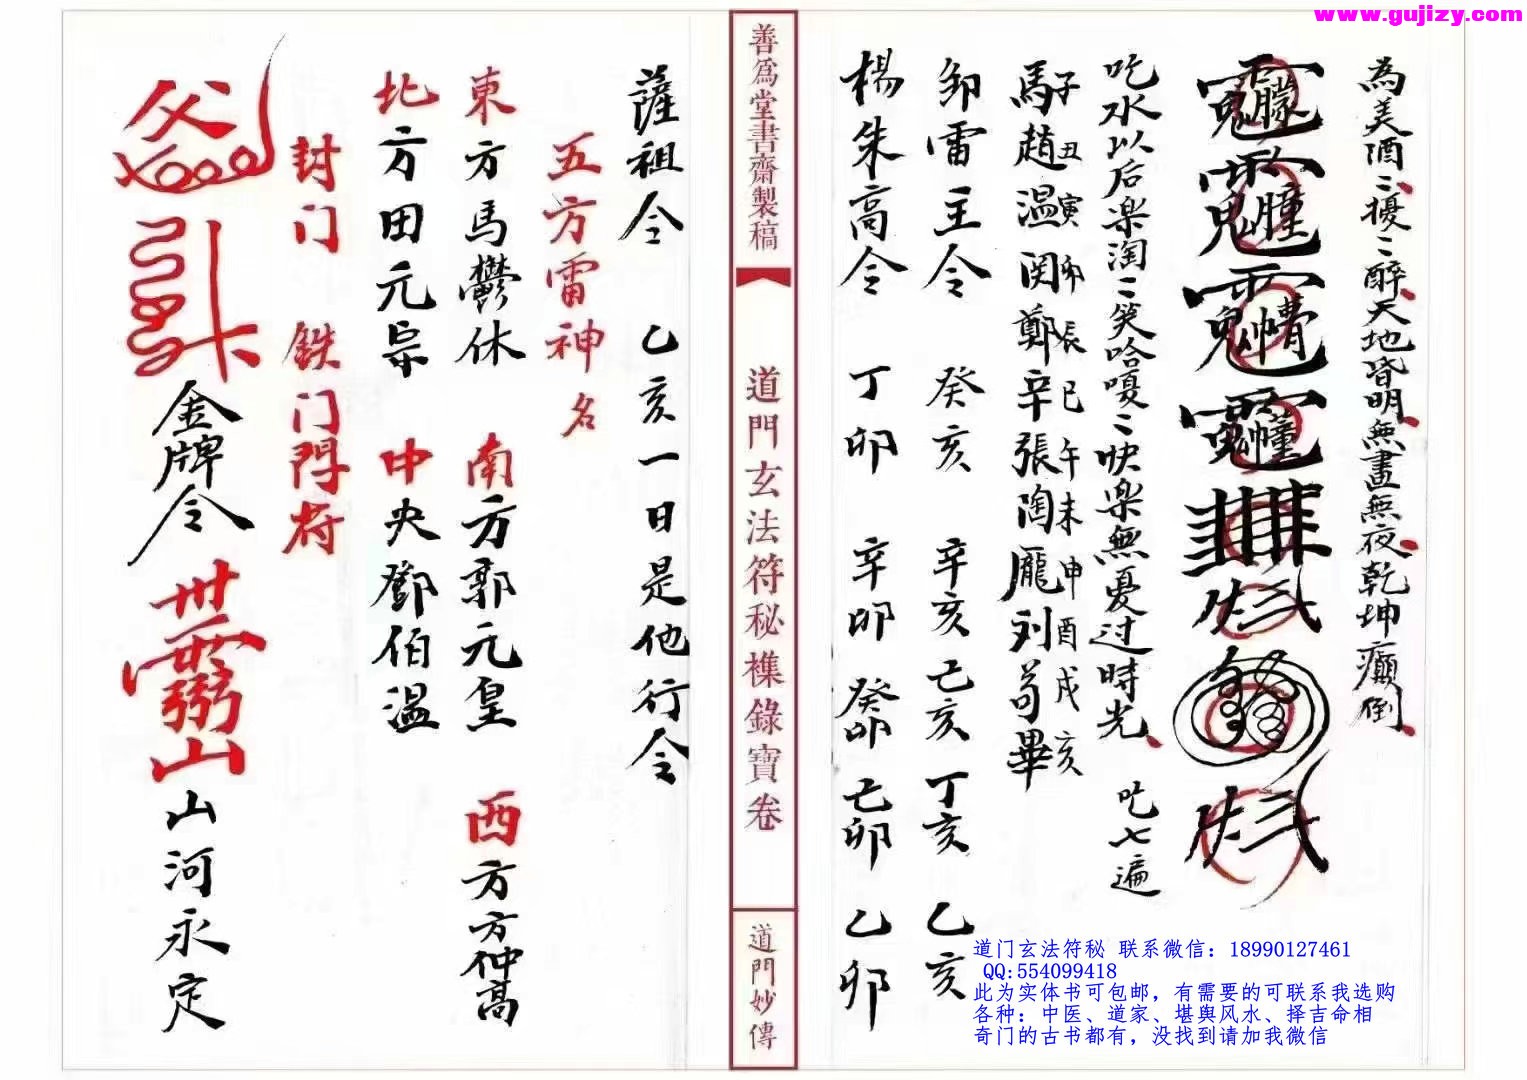 www.gujizy.com
為美酒〻擾〻醉天地昏明無晝無夜乾坤癲倒
吃水以后楽淘〻笑哈嗄〻快楽無憂过時光 吃七遍
子丑寅卯辰巳午未申酉戌亥
馬趙温関鄭辛張陶龐刘苟畢
邹雷主令 癸亥 辛亥 亡亥 丁亥 乙亥
楊朱高令 丁卯 辛卯 癸卯 亡卯 乙卯
善為堂書齋製稿
道門玄法符秘襍錄寶卷
道門妙傳
薩祖令 乙亥一日是他行令
五方雷神名
東方馬鬱休 南方郭元皇 西方方仲高
北方田元宗 中央鄧伯温
封门 鉄门閂符
金牌令
山河永定
道门玄法符秘 联系微信：18990127461
QQ:554099418
此为实体书可包邮，有需要的可联系我选购
各种：中医、道家、堪舆风水、择吉命相
奇门的古书都有，没找到请加我微信